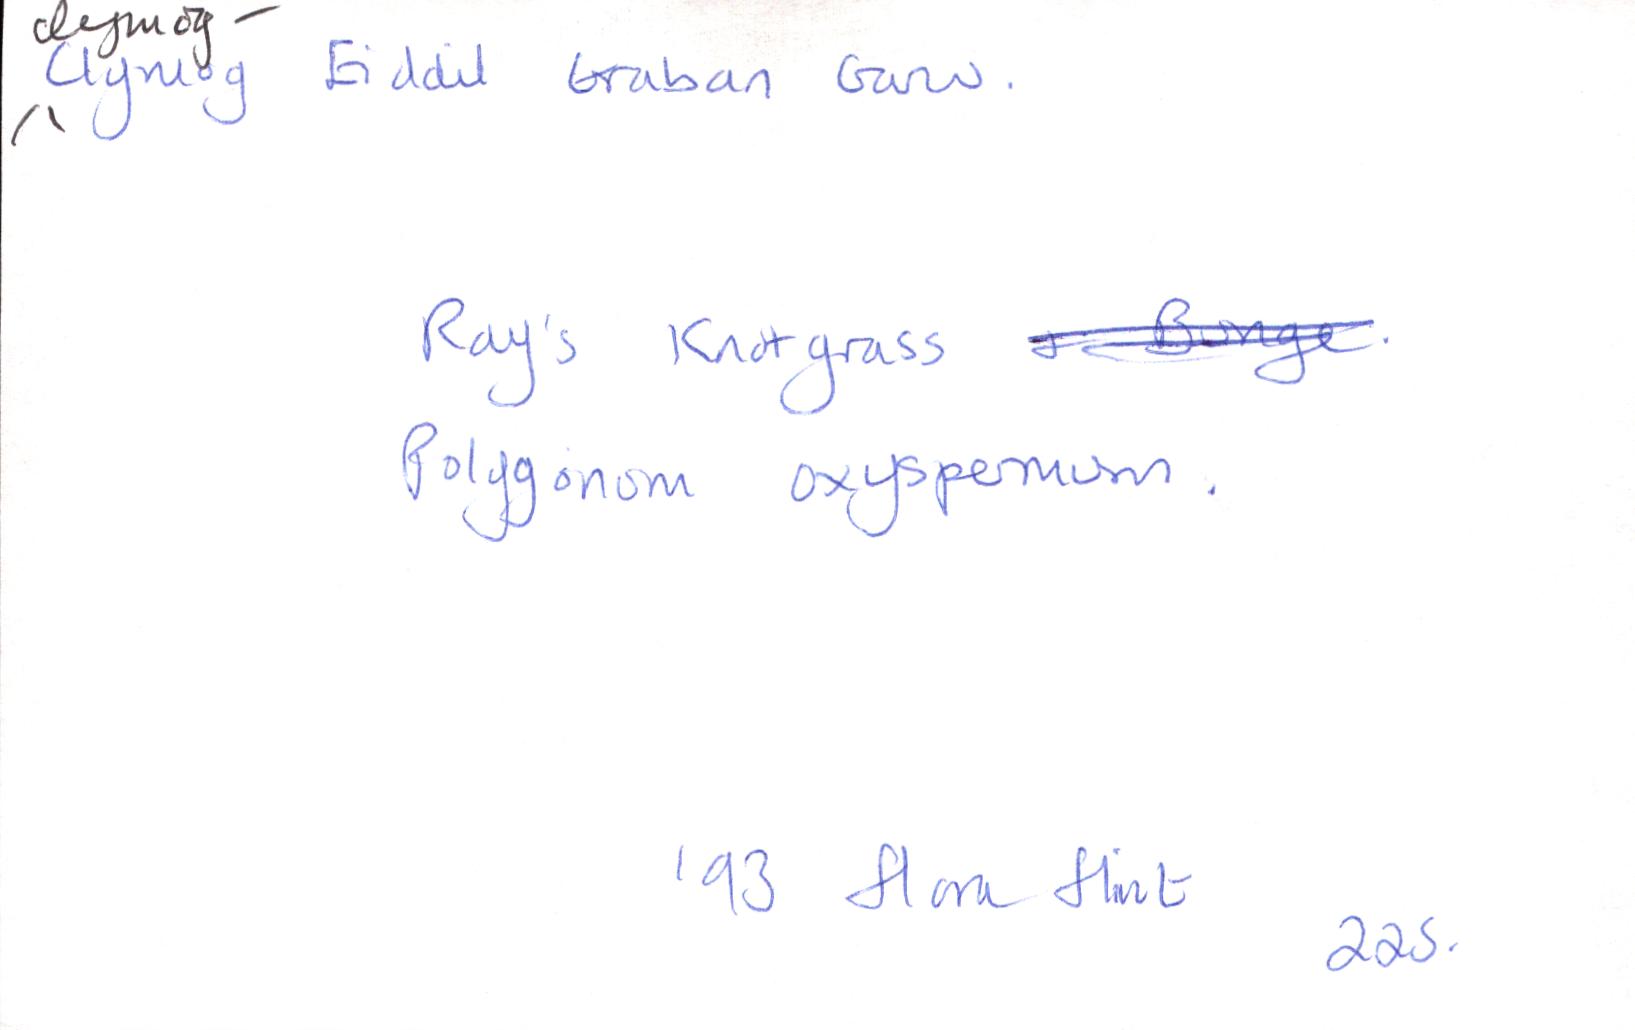 clymog -
Clymog Eiddil Graban Garw.
Ray's Knotgrass
Polygonom oxyspermum.
'93 Flora Flint
225.